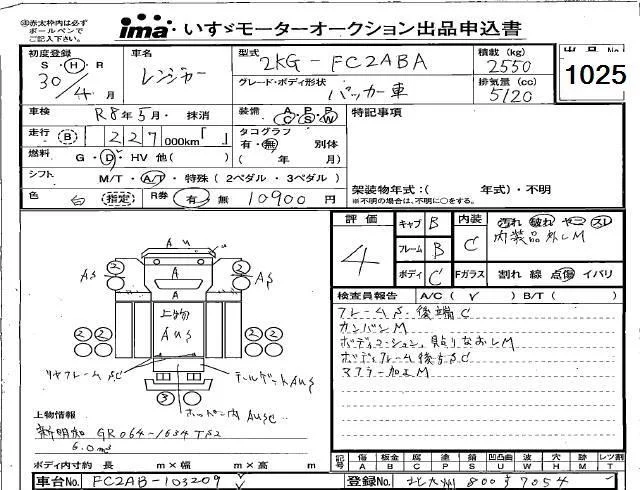 赤太枠内は必ず
ボールペンで
ご記入下さい。
ima いすゞモーターオークション出品申込書
初度登録 車名 型式 積載 (kg) 出品No.
S・H・R 30/4月 レンジャー 2KG-FC2ABA 2550
グレード・ボディ形状 排気量 (cc) 1025
パッカー車 5120
車検 R8年5月・抹消 装備 A C P S P W 特記事項
走行 B 227 000km「 」 タコグラフ
有・無 別体
燃料 G・D・HV 他( ) ( 年 月)
シフト M/T・A/T・特殊(2ペダル・3ペダル)
架装物年式:( 年式)・不明
色 白 (指定) R券 有 無 10900円 ※不明の場合は、不明に○をする。
評価 キャブ B 内装 汚れ 破れ ヤニ スレ
4 フレーム B C 内装品外しM
ボディ C Fガラス 割れ 線 点傷 イバリ
検査員報告 A/C( ✓ ) B/T( )
フレームS.後端C
カンバンM
ボディコーション、貼りなおしM
ボディフレーム後方SC
マフラー加工M
A u
u
② ②
AS AS
A
上物
AUS
②② ②②
リヤフレームSC テールゲートAUS
③ ホッパー内AUSC
上物情報
新明和 GR064-1634TS2
6.0m³
ボディ内寸約 長 m×幅 m×高 m
記号 傷 板金 腐 塗 錆 凹凸曲 波 穴 跡 レツ割
A B C P S U W H M T
車台No. FC2AB-103209 登録No. 北九州 800す7054